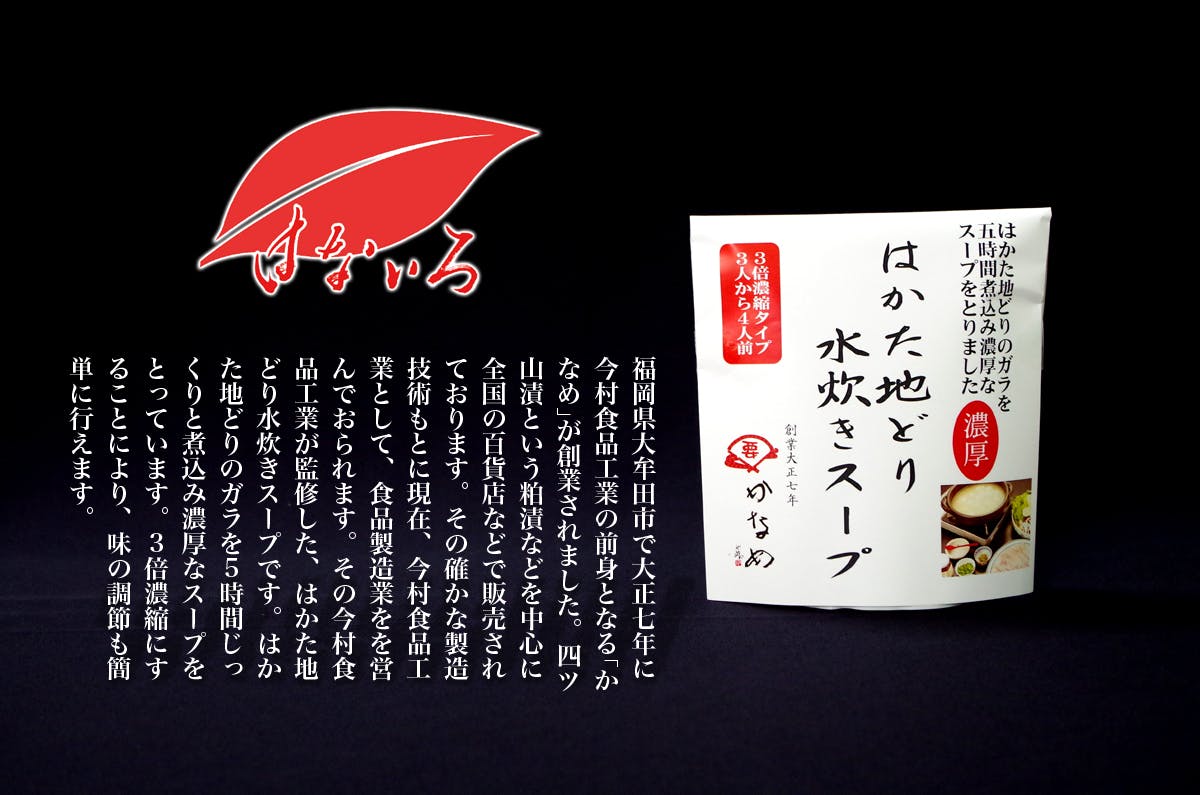 はないろ
福岡県大牟田市で大正七年に
今村食品工業の前身となる「か
なめ」が創業されました。四ツ
山漬という粕漬などを中心に
全国の百貨店などで販売され
ております。その確かな製造
技術もとに現在、今村食品工
業として、食品製造業をを営
んでおられます。その今村食
品工業が監修した、はかた地
どり水炊きスープです。はか
た地どりのガラを５時間じっ
くりと煮込み濃厚なスープを
とっています。３倍濃縮にす
ることにより、味の調節も簡
単に行えます。
はかた地どりのガラを
五時間煮込み濃厚な
スープをとりました
濃厚
はかた地どり
水炊きスープ
3倍濃縮タイプ
3人から4人前
創業大正七年
要
かなめ